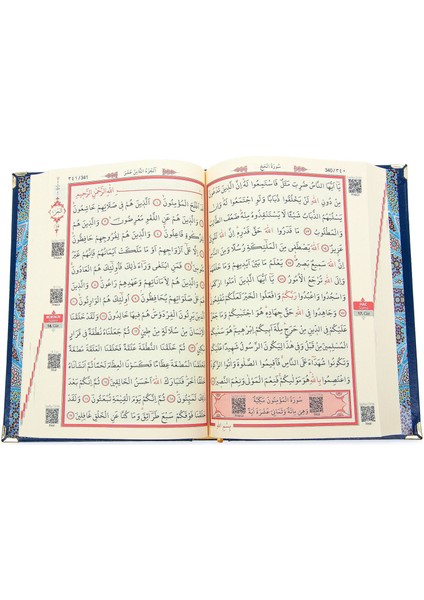 سُورَةُ الْحَجِّ
340/٣٤٠
يَٓا اَيُّهَا النَّاسُ ضُرِبَ مَثَلٌ فَاسْتَمِعُوا لَهُ اِنَّ الَّذ۪ينَ تَدْعُونَ
مِنْ دُونِ اللّٰهِ لَنْ يَخْلُقُوا ذُبَابًا وَلَوِ اجْتَمَعُوا لَهُ وَاِنْ
يَسْلُبْهُمُ الذُّبَابُ شَيْـًٔا لَا يَسْتَنْقِذُوهُ مِنْهُ ضَعُفَ الطَّالِبُ
وَالْمَطْلُوبُ ٧٣ مَا قَدَرُوا اللّٰهَ حَقَّ قَدْرِه۪ اِنَّ اللّٰهَ لَقَوِيٌّ عَز۪يزٌ ٧٤
اَللّٰهُ يَصْطَف۪ي مِنَ الْمَلٰٓئِكَةِ رُسُلًا وَمِنَ النَّاسِ اِنَّ
اللّٰهَ سَم۪يعٌ بَص۪يرٌ ٧٥ يَعْلَمُ مَا بَيْنَ اَيْد۪يهِمْ وَمَا خَلْفَهُمْ وَاِلَى
اللّٰهِ تُرْجَعُ الْاُمُورُ ٧٦ يَٓا اَيُّهَا الَّذ۪ينَ اٰمَنُوا ارْكَعُوا
وَاسْجُدُوا وَاعْبُدُوا رَبَّكُمْ وَافْعَلُوا الْخَيْرَ لَعَلَّكُمْ تُفْلِحُونَ ٧٧
وَجَاهِدُوا فِي اللّٰهِ حَقَّ جِهَادِه۪ هُوَ اجْتَبٰيكُمْ وَمَا جَعَلَ
عَلَيْكُمْ فِي الدّ۪ينِ مِنْ حَرَجٍ مِلَّةَ اَب۪يكُمْ اِبْرٰه۪يمَ هُوَ سَمّٰيكُمُ
الْمُسْلِم۪ينَ مِنْ قَبْلُ وَف۪ي هٰذَا لِيَكُونَ الرَّسُولُ شَه۪يدًا عَلَيْكُمْ
وَتَكُونُوا شُهَدَٓاءَ عَلَى النَّاسِ فَاَق۪يمُوا الصَّلٰوةَ وَاٰتُوا الزَّكٰوةَ
وَاعْتَصِمُوا بِاللّٰهِ هُوَ مَوْلٰيكُمْ فَنِعْمَ الْمَوْلٰى وَنِعْمَ النَّص۪يرُ ٧٨
سُورَةُ الْمُؤْمِنُونَ مَكِّيَّةٌ
وَهِيَ مِائَةٌ وَثَمَانِ عَشْرَةَ اٰيَةً
اَلْجُزْءُ الثَّامِنَ عَشَرَ
٣٤١/341
بِسْمِ اللّٰهِ الرَّحْمٰنِ الرَّح۪يمِ
قَدْ اَفْلَحَ الْمُؤْمِنُونَ ١ اَلَّذ۪ينَ هُمْ ف۪ي صَلَاتِهِمْ خَاشِعُونَ ٢
وَالَّذ۪ينَ هُمْ عَنِ اللَّغْوِ مُعْرِضُونَ ٣ وَالَّذ۪ينَ هُمْ
لِلزَّكٰوةِ فَاعِلُونَ ٤ وَالَّذ۪ينَ هُمْ لِفُرُوجِهِمْ حَافِظُونَ ٥
اِلَّا عَلٰٓى اَزْوَاجِهِمْ اَوْ مَا مَلَكَتْ اَيْمَانُهُمْ فَاِنَّهُمْ غَيْرُ
مَلُوم۪ينَ ٦ فَمَنِ ابْتَغٰى وَرَٓاءَ ذٰلِكَ فَاُو۬لٰٓئِكَ هُمُ الْعَادُونَ ٧
وَالَّذ۪ينَ هُمْ لِاَمَانَاتِهِمْ وَعَهْدِهِمْ رَاعُونَ ٨ وَالَّذ۪ينَ هُمْ
عَلٰى صَلَوَاتِهِمْ يُحَافِظُونَ ٩ اُو۬لٰٓئِكَ هُمُ الْوَارِثُونَ ١٠ اَلَّذ۪ينَ
يَرِثُونَ الْفِرْدَوْسَ هُمْ ف۪يهَا خَالِدُونَ ١١ وَلَقَدْ خَلَقْنَا
الْاِنْسَانَ مِنْ سُلَالَةٍ مِنْ ط۪ينٍ ١٢ ثُمَّ جَعَلْنَاهُ نُطْفَةً ف۪ي
قَرَارٍ مَك۪ينٍ ١٣ ثُمَّ خَلَقْنَا النُّطْفَةَ عَلَقَةً فَخَلَقْنَا الْعَلَقَةَ مُضْغَةً
فَخَلَقْنَا الْمُضْغَةَ عِظَامًا فَكَسَوْنَا الْعِظَامَ لَحْمًا ثُمَّ اَنْشَاْنَاهُ
خَلْقًا اٰخَرَ فَتَبَارَكَ اللّٰهُ اَحْسَنُ الْخَالِق۪ينَ ١٤ ثُمَّ اِنَّكُمْ بَعْدَ
ذٰلِكَ لَمَيِّتُونَ ١٥ ثُمَّ اِنَّكُمْ يَوْمَ الْقِيٰمَةِ تُبْعَثُونَ ١٦ وَلَقَدْ خَلَقْنَا
فَوْقَكُمْ سَبْعَ طَرَٓائِقَ وَمَا كُنَّا عَنِ الْخَلْقِ غَافِل۪ينَ ١٧